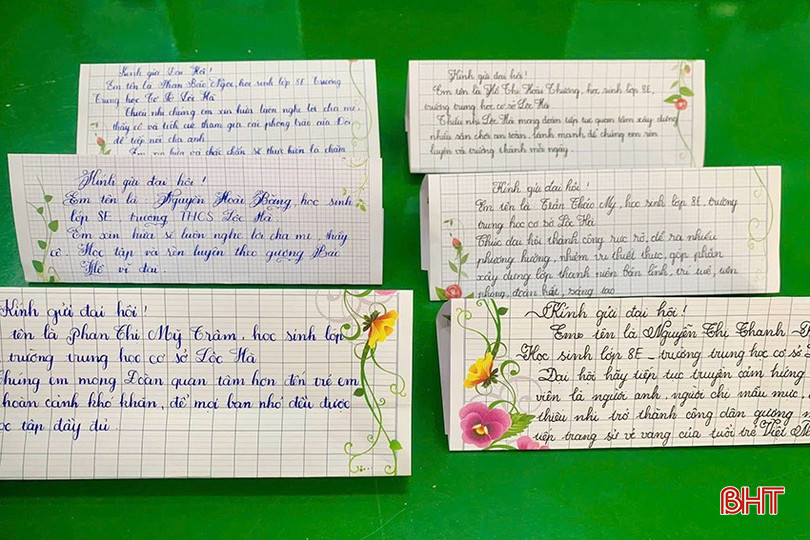 Kính gửi Đại Hội !
Em tên là Phan Bảo Ngọc, học sinh lớp 8E, Trường
Trung học Cơ Sở Lộc Hà
Thiếu nhi chúng em xin hứa luôn nghe lời cha mẹ,
thầy cô và tích cực tham gia các phong trào của Đội
để tiếp nối cha anh
Em xin hứa và chắc chắn sẽ thực hiện là chăm
Kính gửi đại hội !
Em tên là Nguyễn Hoài Băng, học sinh
lớp 8E, trường THCS Lộc Hà.
Em xin hứa sẽ luôn nghe lời cha mẹ, thầy
cô. Học tập và rèn luyện theo gương Bác
Hồ vĩ đại.
Kính gửi đại hội !
tên là Phan Thị Mỹ Trâm, học sinh lớp
trường trung học cơ sở Lộc Hà
chúng em mong Đoàn quan tâm hơn đến trẻ em
hoàn cảnh khó khăn, để mọi bạn nhỏ đều được
học tập đầy đủ.
Kính gửi đại hội !
Em tên là Hồ Thị Hoài Thương, học sinh lớp 8E,
trường trung học cơ sở Lộc Hà
Thiếu nhi Lộc Hà mong đoàn tiếp tục quan tâm xây dựng
nhiều sân chơi an toàn, lành mạnh để chúng em rèn
luyện và trưởng thành mỗi ngày.
Kính gửi đại hội !
Em tên là Trần Thảo My, học sinh lớp 8E, trường
trung học cơ sở Lộc Hà
Chúc đại hội thành công rực rỡ, đề ra nhiều
phương hướng, nhiệm vụ thiết thực, góp phần
xây dựng lớp thanh niên bản lĩnh, trí tuệ, tiên
phong, đoàn kết, sáng tạo
Kính gửi đại hội !
Em tên là Nguyễn Thị Thanh
Học sinh lớp 8E - trường trung học cơ sở
Đại hội hãy tiếp tục truyền cảm hứng
viên là người anh, người chị mẫu mực,
thiếu nhi trở thành công dân gương
tiếp trang sử vẻ vang của tuổi trẻ Việt
BHT